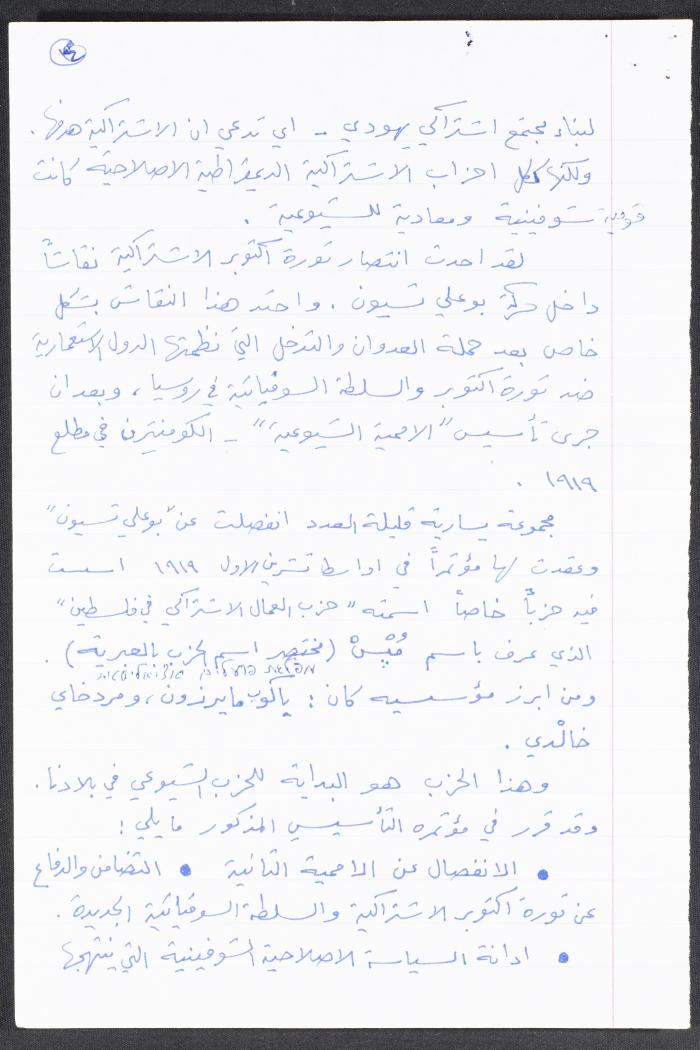 لبناء مجتمع اشتراكي يهودي - اي تدعي ان الاشتراكية هدفها.
ولكنها ككل احزاب الاشتراكية الديمقراطية الاصلاحية كانت
قومية شوفينية ومعادية للشيوعية.
لقد احدث انتصار ثورة اكتوبر الاشتراكية نقاشاً
داخل حركة بوعلي تسيون. واحتد هذا النقاش بشكل
خاص بعد حملة العدوان والتدخل التي نظمتها الدول الاستعمارية
ضد ثورة اكتوبر والسلطة السوفياتية في روسيا، وبعد ان
جرى تأسيس "الاممية الشيوعية" - الكومنترن في مطلع
١٩١٩.
مجموعة يسارية قليلة العدد انفصلت عن "بوعلي تسيون"
وعقدت لها مؤتمراً في اواسط تشرين الاول ١٩١٩ اسست
فيه حزباً خاصاً اسمته "حزب العمال الاشتراكي في فلسطين"
الذي عرف باسم مُپْسْ (مختصر اسم الحزب بالعبرية).
מפלגת פועלים סוציאליסטית
ومن ابرز مؤسسيه كان: ياكوب مايرزون، ومردخاي
خالْدي.
وهذا الحزب هو البداية للحزب الشيوعي في بلادنا.
وقد قرر في مؤتمره التأسيسي المذكور ما يلي:
• الانفصال عن الاممية الثانية • التضامن والدفاع
عن ثورة اكتوبر الاشتراكية والسلطة السوفياتية الجديدة.
• ادانة السياسة الاصلاحية الشوفينية التي ينتهجها